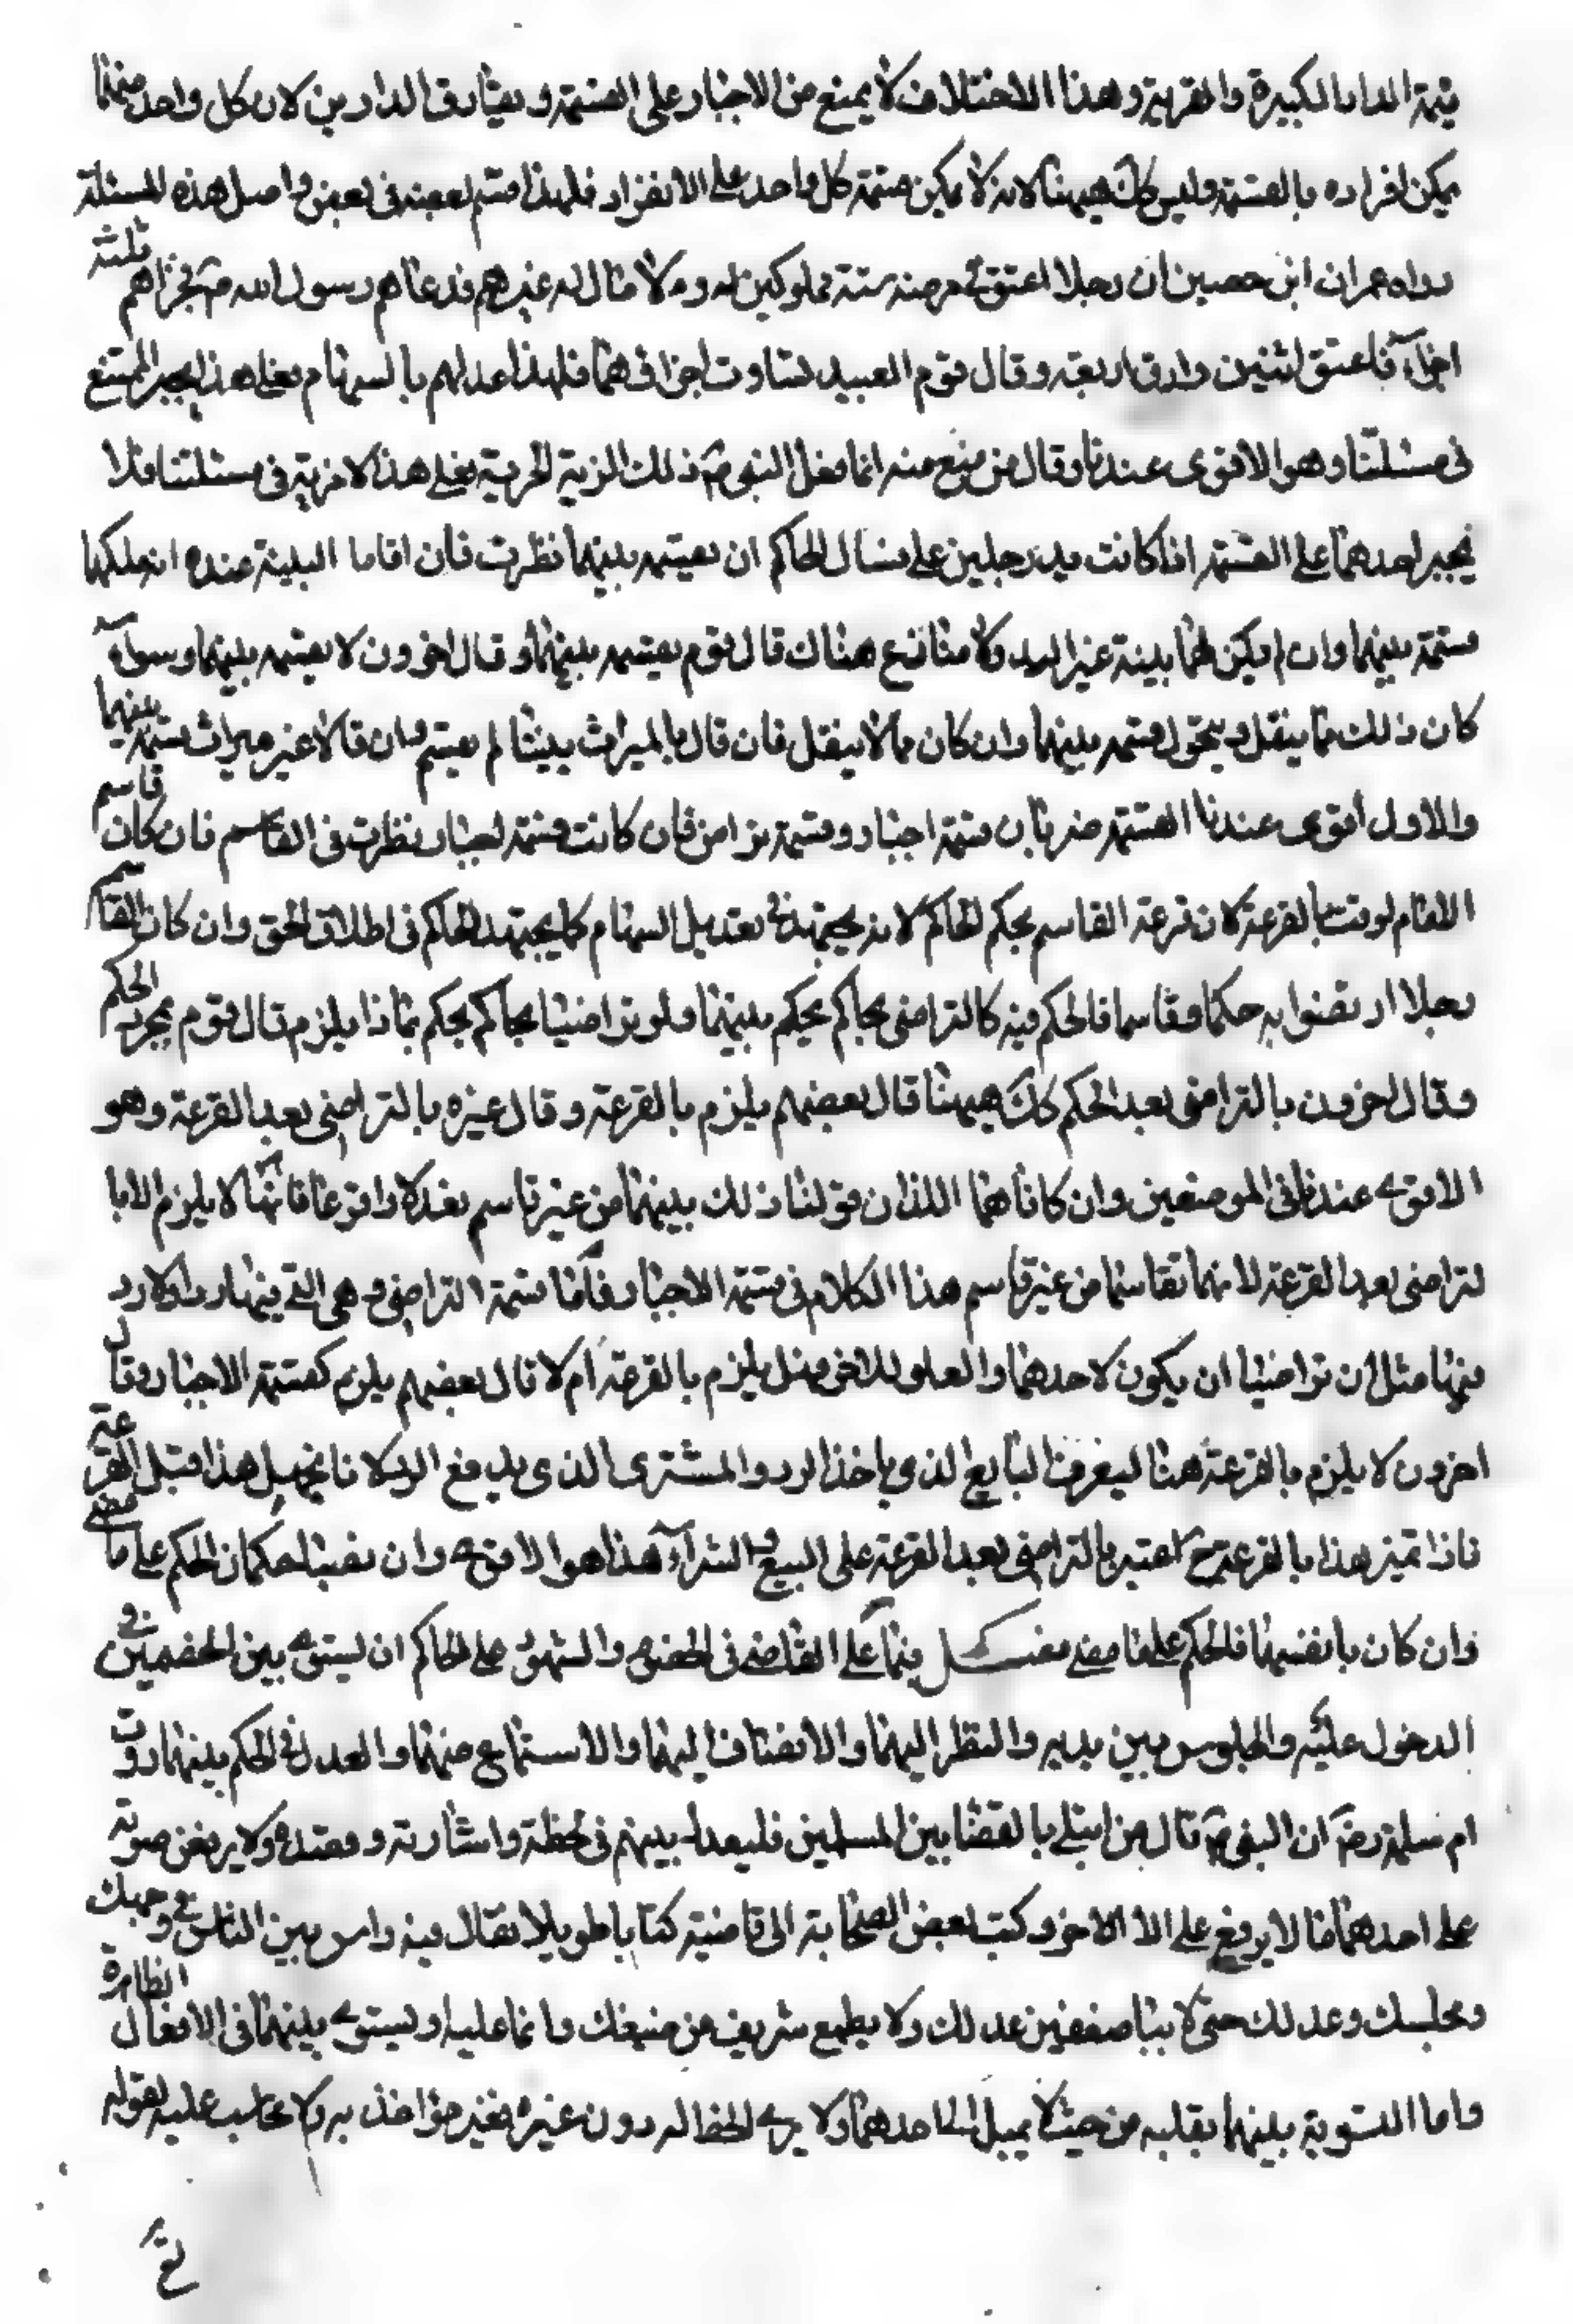 قيمة الدار الكبيرة والقرية وهذا الاختلاف لا يمنع من الاجبار على القسمة ويفارق الدارين لان كل واحد منهما
يمكن افراده بالقسمة وليس كك هيهنا لانه لا يمكن قسمة كل واحد على الانفراد فلهذا قسم بعضه في بعض واصل هذه المسئلة
رواه عمران ابن حصين ان رجلا اعتق في مرضه ستة مملوكين له ولا مال له غيرهم فدعاهم رسول الله ص فجزاهم ثلثة
اجزاء فاعتق اثنين وارق اربعة وقال قوم العبيد تساوت اجزاؤهما فلهذا عدلهم بالسهام فعلى هذا يجبر الممتنع
في مسئلتنا وهو الاقوى عندنا وقال من منع منه انما فعل النبي ص ذلك لمزية الحرية فعلى هذا لا مزية في مسئلتنا فلا
يجبر احدهما على القسمة اذا كانت يد رجلين على فسال الحاكم ان يقسمه بينهما نظرت فان اقاما البينة عنده انه ملكهما
قسمة بينهما وان لم يكن لهما بينة غير اليد ولا منازع هناك قال قوم يقسمه بينهما وقال اخرون لا يقسمه بينهما وسواء
كان ذلك مما ينقل ويحول قسمه بينهما وان كان مما لا ينقل فان قالا بالميراث بيننا لم يقسم وان قالا غير ميراث قسمه بينهما
والاول اقوى عندنا القسمة ضربان قسمة اجبار وقسمة تراض فان كانت قسمة اجبار نظرت في القاسم فان كان قاسم
الامام لزمت بالقرعة لان قرعة القاسم بحكم الحاكم لانه يجتهد في تعديل السهام كما يجتهد الحاكم في اطلاق الحق وان كان القاسم
رجلا ارتضوا به حكما وقاسما فالحكم فيه كالتراضي بحاكم يحكم بينهما ولو تراضيا بحاكم يحكم بماذا يلزم قال قوم بمجرد الحكم
وقال اخرون بالتراضي بعد الحكم كك هيهنا قال بعضهم يلزم بالقرعة وقال غيره بالتراضي بعد القرعة وهو
الاقوى عندنا في الموضعين وان كانا هما اللذان توليا ذلك بينهما من غير قاسم فعدلا واقرعا فانها لا يلزم الا با
لتراضي بعد القرعة لانهما تقاسما من غير قاسم هذا الكلام في قسمة الاجبار فاما قسمة التراضي وهي التي فيها رد او لا رد
فيها مثل ان تراضيا ان يكون لاحدهما والعلو للاخر فهل يلزم بالقرعة ام لا قال بعضهم يلزم كقسمة الاجبار وقال
اخرون لا يلزم بالقرعة هنا ليعرف البايع الذي ياخذ الرد والمشتري الذي يدفع الرد لانا نجهل هذا قبل القرعة
فاذا تميز هذا بالقرعة ح اعتبر بالتراضي بعد القرعة على البيع والشراء هذا هو الاقوى وان نصبا حكما فان الحكم على ما مضى
وان كان بانفسهما فالحكم على ما مضى فصل فيما على القاضي في الخصوم والشهود على الحاكم ان يسوى بين الخصمين في
الدخول عليه والجلوس بين يديه والنظر اليهما والانصات اليهما والاستماع منهما والعدل في الحكم بينهما روت
ام سلمة رض ان النبي ص قال من ابتلى بالقضا بين المسلمين فليعدل بينهم في لحظة واشارته ومقعده ولا يرفعن صوته
على احدهما ما لا يرفع على الا الاخر وكتب بعض الصحابة الى قاضيه كتابا طويلا فقال فيه واس بين الناس في وجهك
ومجلسك وعدلك حتى لا ييأس ضعيف من عدلك ولا يطمع شريف من حيفك وانما عليه ان يسوى بينهما في الافعال الظاهرة
واما التسوية بينهما بقلبه من حيث لا يميل الى احدهما ولا يرى الحظ له دون غيره فغير مؤاخذ به ولا محاسب عليه لقوله
تع